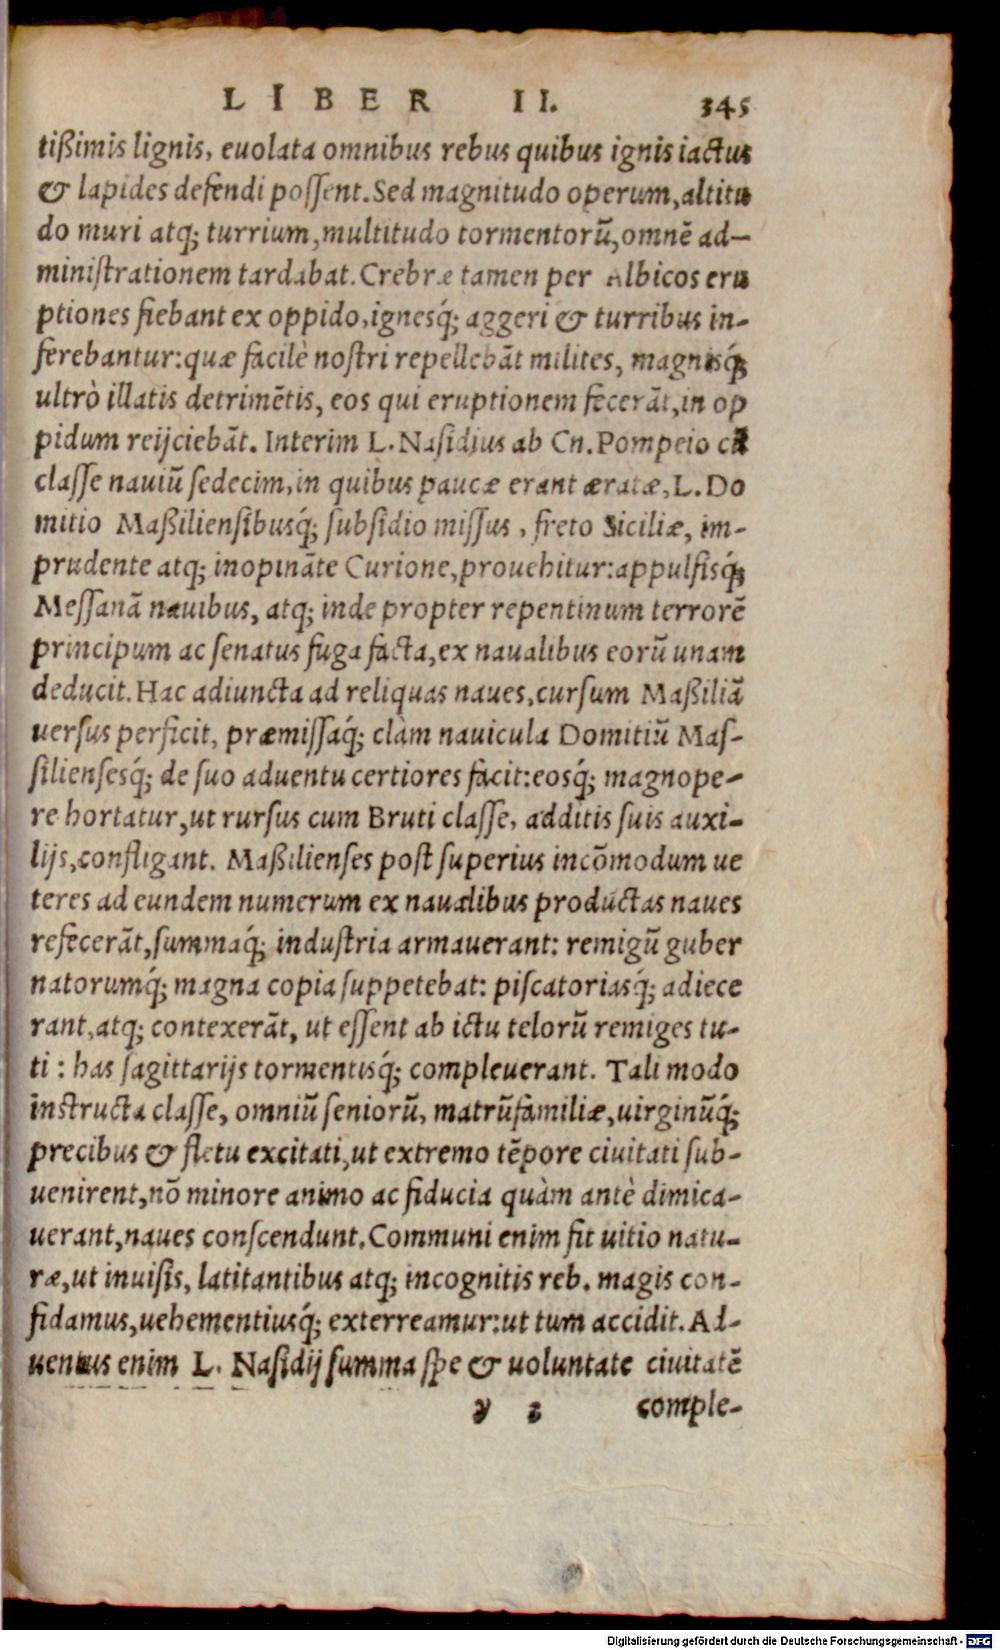 LIBER II. 345
tißimis lignis, euolata omnibus rebus quibus ignis iactus
& lapides defendi poſſent. Sed magnitudo operum, altitu
do muri atq; turrium, multitudo tormentorũ, omnẽ ad-
miniſtrationem tardabat. Crebræ tamen per Albicos eru
ptiones fiebant ex oppido, ignesq́; aggeri & turribus in-
ferebantur: quæ facilè noſtri repellebãt milites, magnisq́;
ultrò illatis detrimẽtis, eos qui eruptionem fecerãt, in op
pidum reijciebãt. Interim L. Naſidius ab Cn. Pompeio cũ
claſſe nauiũ ſedecim, in quibus paucæ erant æratæ, L. Do
mitio Maßilienſibusq́; ſubſidio miſſus, freto Siciliæ, im-
prudente atq; inopinãte Curione, prouehitur: appulſisq́;
Meſſanã nauibus, atq; inde propter repentinum terrorẽ
principum ac ſenatus fuga facta, ex naualibus eorũ unam
deducit. Hac adiuncta ad reliquas naues, curſum Maßiliã
uerſus perficit, præmiſſaq́; clàm nauicula Domitiũ Maſ-
ſilienſesq́; de ſuo aduentu certiores facit: eosq́; magnope-
re hortatur, ut rurſus cum Bruti claſſe, additis ſuis auxi-
lijs, confligant. Maßilienſes poſt ſuperius incõmodum ue
teres ad eundem numerum ex naualibus productas naues
refecerãt, ſummaq́; induſtria armauerant: remigũ guber
natorumq́; magna copia ſuppetebat: piſcatoriasq́; adiece
rant, atq; contexerãt, ut eſſent ab ictu telorũ remiges tu-
ti: has ſagittarijs tormentisq́; compleuerant. Tali modo
inſtructa claſſe, omniũ ſeniorũ, matrũfamiliæ, uirginũq́;
precibus & fletu excitati, ut extremo tẽpore ciuitati ſub-
uenirent, nõ minore animo ac fiducia quàm antè dimica-
uerant, naues conſcendunt. Communi enim fit uitio natu-
ræ, ut inuiſis, latitantibus atq; incognitis reb. magis con-
fidamus, uehementiusq́; exterreamur: ut tum accidit. Ad-
uentus enim L. Naſidij ſumma ſpe & uoluntate ciuitatẽ
y 2 comple-
Digitalisierung gefördert durch die Deutsche Forschungsgemeinschaft - DFG